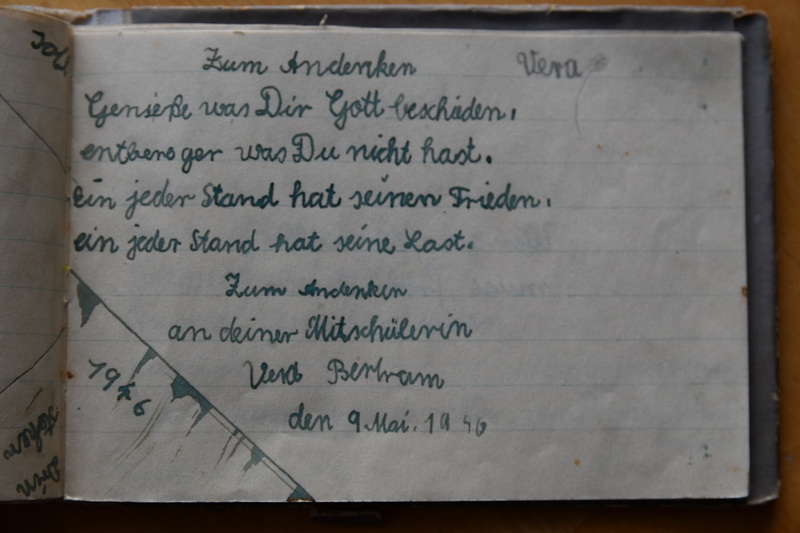 Zum Andenken
Vera
Genieße was Dir Gott beschieden,
entbere ger was Du nicht hast.
ein jeder Stand hat seinen Frieden,
ein jeder Stand hat seine Last.
Zum Andenken
an deiner Mitschülerin
Vera Bertram
den 9 Mai. 1946
1946